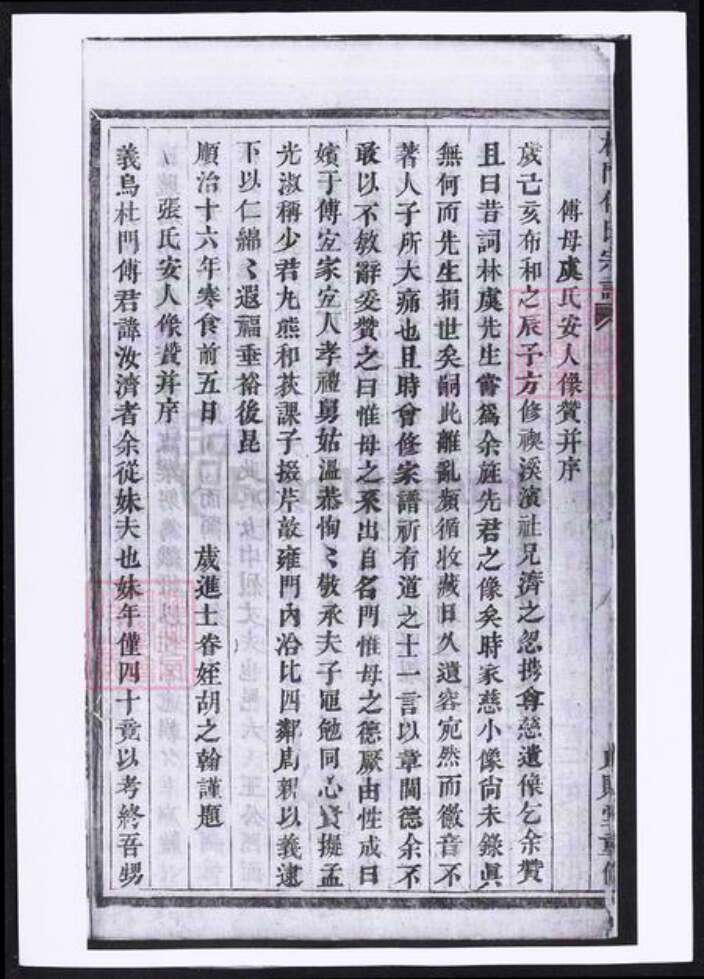 傅母虞氏安人像贊并序
歲己亥布和之辰予方修禊溪濱社兄濟之忽携尊慈遺像乞余贊
且曰昔詞林虞先生嘗為余旌先君之像矣時家慈小像尙未錄眞
無何而先生捐世矣嗣此離亂頻循收藏日久遺容宛然而徽音不
著人子所大痛也且時會修家譜祈有道之士一言以章閫德余不
敢以不敏辭爰贊之曰惟母之系出自名門惟母之德厥由性成曰
嬪于傅宜家宜人孝禮舅姑溫恭恂〻敬承夫子黽勉同心賢擬孟
光淑稱少君九熊和荻課子掇芹敔雍門內洽比四鄰周親以義逮
下以仁綿〻遐福垂裕後昆
順治十六年寒食前五日 歲進士眷姪胡之翰謹題
張氏安人像贊并序
義烏杜門傅君諱汝濟者余從妹夫也妹年僅四十竟以考終吾甥